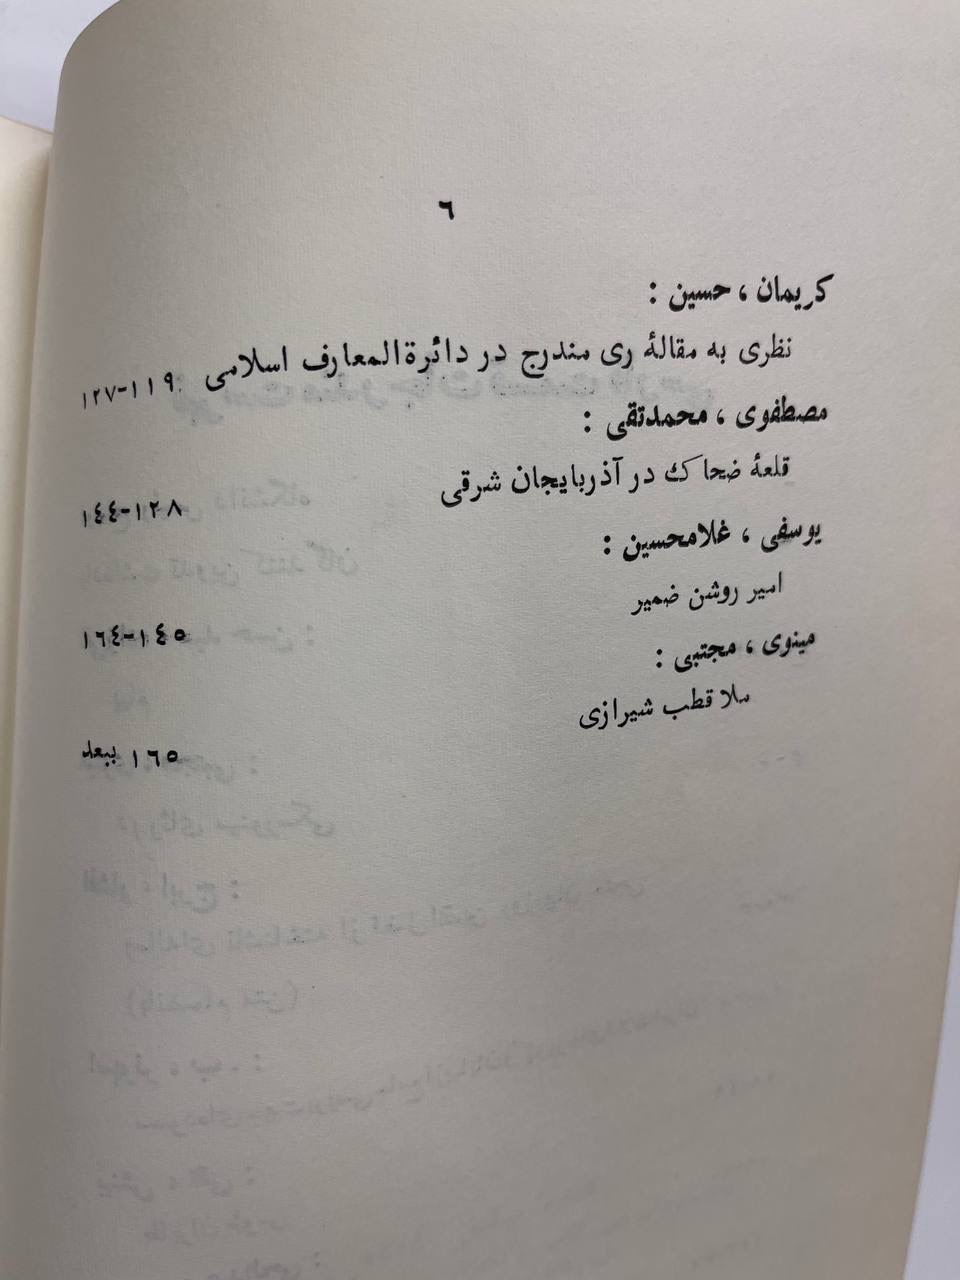 ٦
کریمان ، حسین :
نظری به مقالهٔ ری مندرج در دائرةالمعارف اسلامی ١١٩-١٢٧
مصطفوی ، محمدتقی :
قلعهٔ ضحاک در آذربایجان شرقی
١٢٨-١٤٤
یوسفی ، غلامحسین :
امیر روشن ضمیر
١٤٥-١٦٤
مینوی ، مجتبی :
ملا قطب شیرازی
١٦٥ ببعد